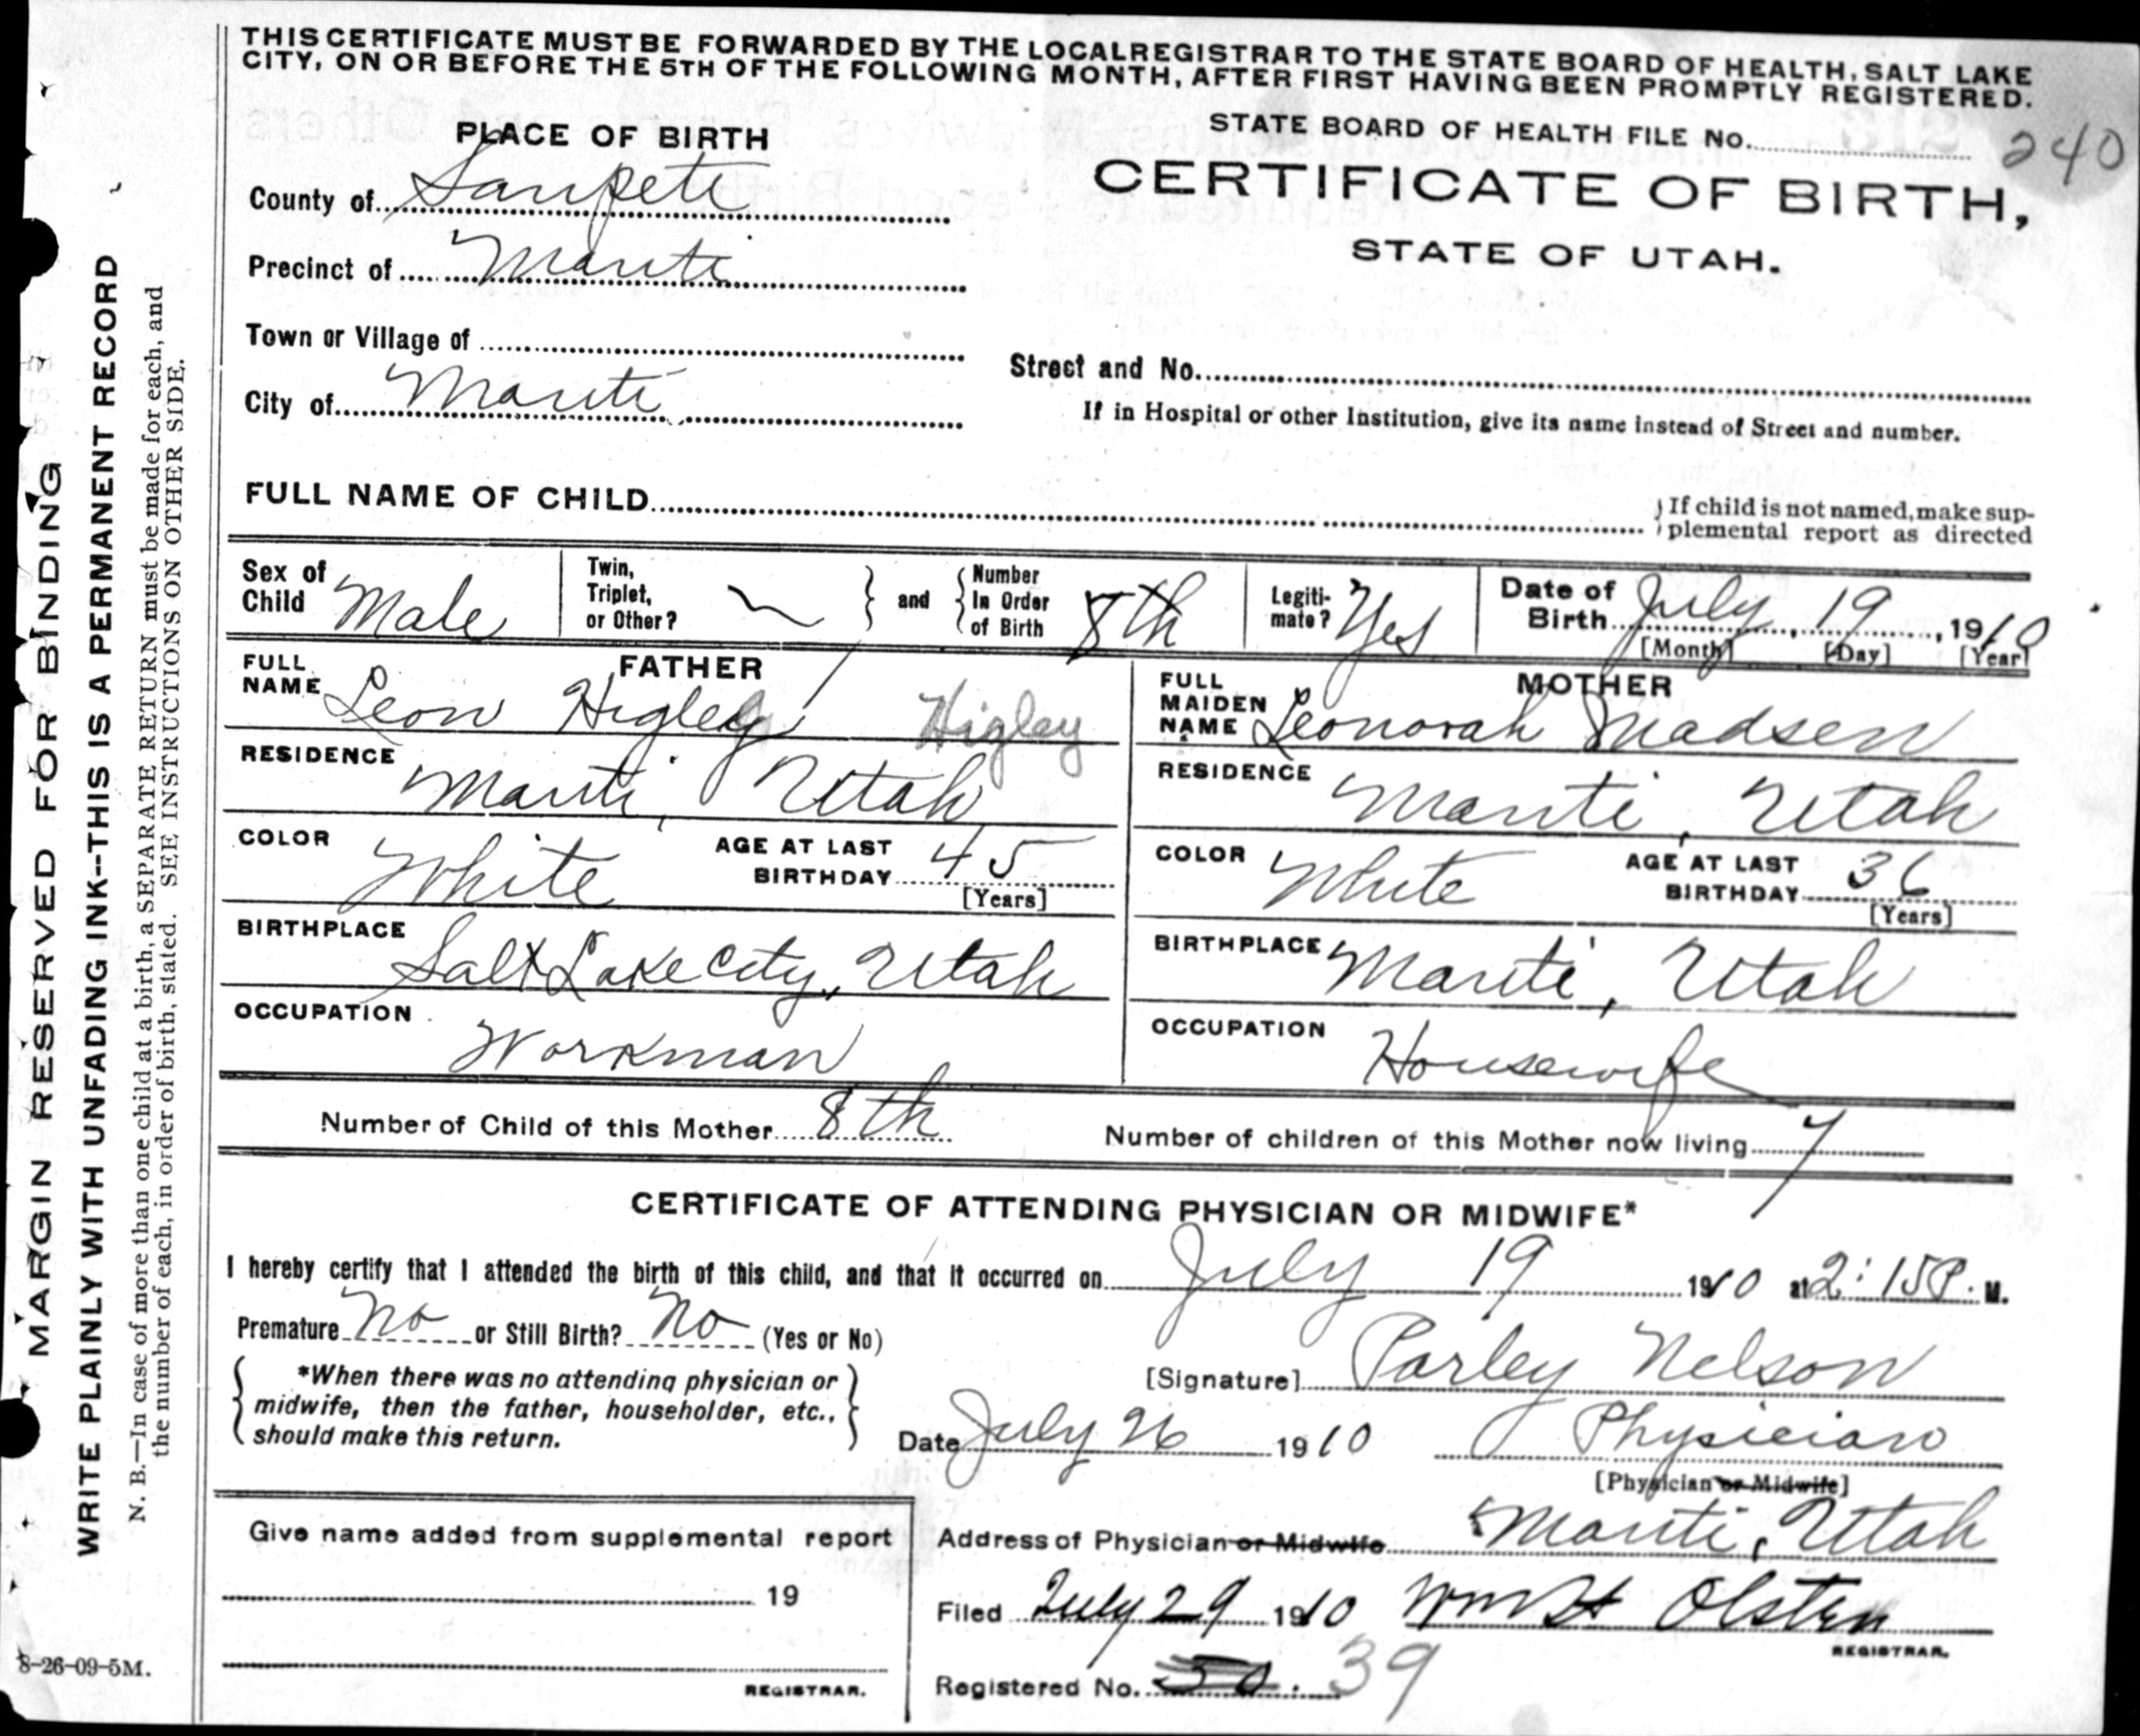 THIS CERTIFICATE MUST BE FORWARDED BY THE LOCAL REGISTRAR TO THE STATE BOARD OF HEALTH, SALT LAKE
CITY, ON OR BEFORE THE 5TH OF THE FOLLOWING MONTH, AFTER FIRST HAVING BEEN PROMPTLY REGISTERED.
STATE BOARD OF HEALTH FILE No. 240
PLACE OF BIRTH
CERTIFICATE OF BIRTH,
STATE OF UTAH.
County of Sanpete
Precinct of Manti
Town or Village of
City of Manti
Street and No.
If in Hospital or other Institution, give its name instead of Street and number.
FULL NAME OF CHILD
If child is not named, make sup-
plemental report as directed
Sex of Child Male
Twin, Triplet, or Other?
and
Number In Order of Birth 8th
Legiti-mate? Yes
Date of Birth July, 19, 1910
[Month] [Day] [Year]
FATHER
FULL NAME Leon Higley Higley
RESIDENCE Manti, Utah
COLOR White
AGE AT LAST BIRTHDAY 45
[Years]
BIRTHPLACE Salt Lake City, Utah
OCCUPATION Workman
MOTHER
FULL MAIDEN NAME Leonorah Madsen
RESIDENCE Manti, Utah
COLOR White
AGE AT LAST BIRTHDAY 36
[Years]
BIRTHPLACE Manti, Utah
OCCUPATION Housewife
Number of Child of this Mother 8th
Number of children of this Mother now living 7
CERTIFICATE OF ATTENDING PHYSICIAN OR MIDWIFE*
I hereby certify that I attended the birth of this child, and that it occurred on July 19 1910 at 2:15 P. M.
Premature No or Still Birth? No (Yes or No)
*When there was no attending physician or
midwife, then the father, householder, etc.,
should make this return.
[Signature] Parley Nelson
Date July 26 1910 Physician
[Physician or Midwife]
Address of Physician or Midwife Manti, Utah
Filed July 29 1910 Wm H Olsten
REGISTRAR.
Registered No. 50. 39
Give name added from supplemental report
19
REGISTRAR.
MARGIN RESERVED FOR BINDING
WRITE PLAINLY WITH UNFADING INK--THIS IS A PERMANENT RECORD
N. B.—In case of more than one child at a birth, a SEPARATE RETURN must be made for each, and
the number of each, in order of birth, stated. SEE INSTRUCTIONS ON OTHER SIDE.
8-26-09-5M.